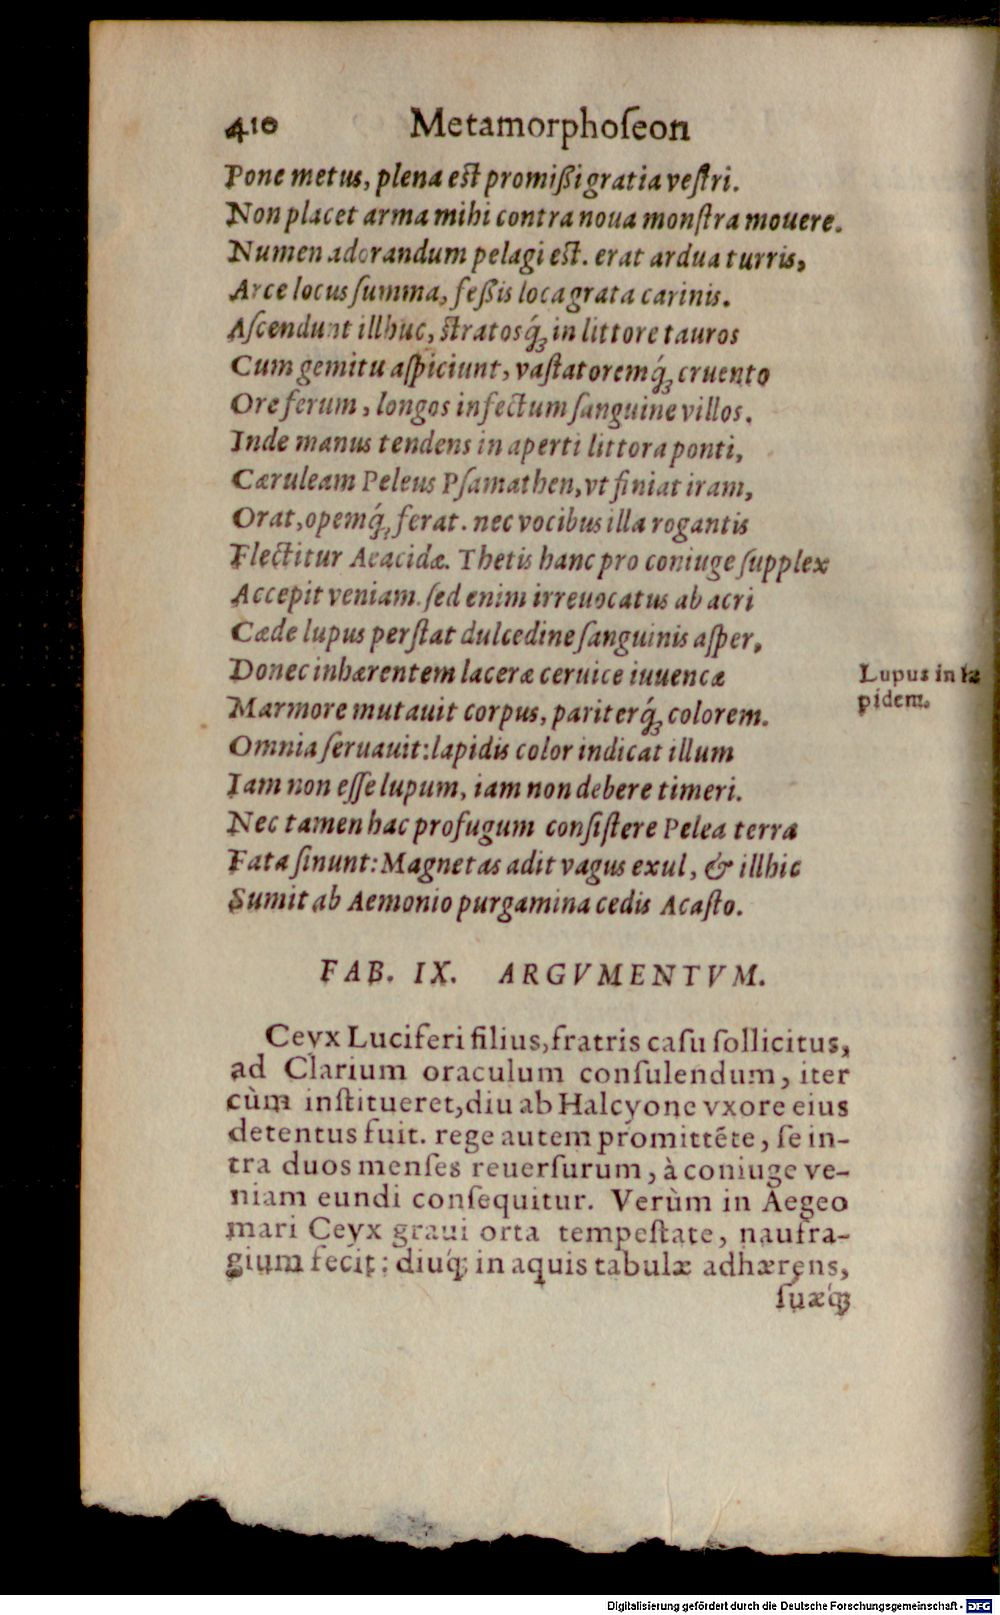 410 Metamorphoſeon
Pone metus, plena est promißi gratia veſtri.
Non placet arma mihi contra noua monſtra mouere.
Numen adorandum pelagi est. erat ardua turris,
Arce locus ſumma, feßis loca grata carinis.
Aſcendunt illhuc, stratosq́ꝫ in littore tauros
Cum gemitu aſpiciunt, vaſtatoremq́ꝫ cruento
Ore ferum, longos infectum ſanguine villos.
Inde manus tendens in aperti littora ponti,
Cæruleam Peleus Pſamathen, vt finiat iram,
Orat, opemq́ꝫ ferat. nec vocibus illa rogantis
Flectitur Aeacidæ. Thetis hanc pro coniuge ſupplex
Accepit veniam. ſed enim irreuocatus ab acri
Cæde lupus perſtat dulcedine ſanguinis aſper,
Donec inhærentem laceræ ceruice iuuencæ
Lupus in la
pidem.
Marmore mutauit corpus, pariterq́ꝫ colorem.
Omnia ſeruauit: lapidis color indicat illum
Iam non eſſe lupum, iam non debere timeri.
Nec tamen hac profugum conſiſtere Pelea terra
Fata ſinunt: Magnetas adit vagus exul, & illhic
Sumit ab Aemonio purgamina cedis Acaſto.
FAB. IX. ARGVMENTVM.
Ceyx Luciferi filius, fratris caſu ſollicitus,
ad Clarium oraculum conſulendum, iter
cùm inſtitueret, diu ab Halcyone vxore eius
detentus fuit. rege autem promittẽte, ſe in-
tra duos menſes reuerſurum, à coniuge ve-
niam eundi conſequitur. Verùm in Aegeo
mari Ceyx graui orta tempeſtate, naufra-
gium fecit: diuq́ꝫ in aquis tabulæ adhærens,
ſuæq́ꝫ
Digitalisierung gefördert durch die Deutsche Forschungsgemeinschaft - DFG